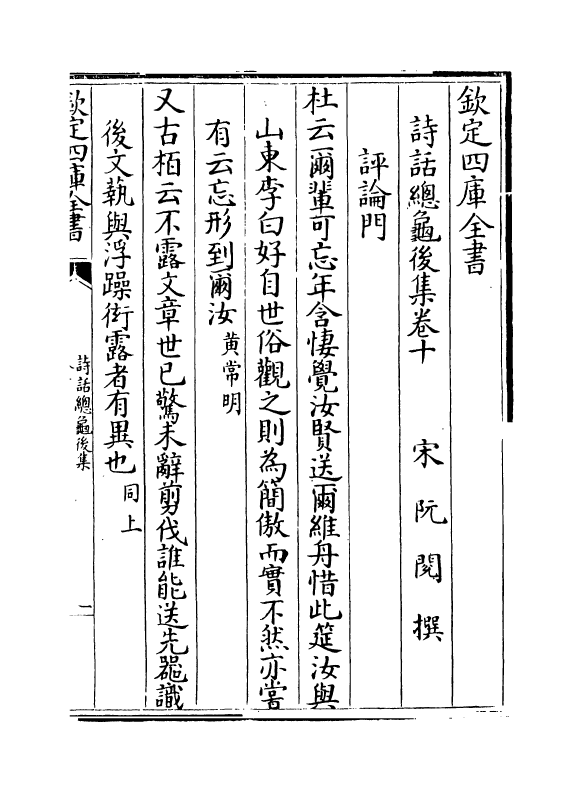 欽定四庫全書
詩話總龜後集卷十
宋 阮閱 撰
評論門
杜云爾輩可忘年含悽覺汝賢送爾維舟惜此筵汝與
山東李白好自世俗觀之則為簡傲而實不然亦嘗
有云忘形到爾汝 黃常明
又古栢云不露文章世已驚未辭剪伐誰能送先器識
後文執與浮躁衒露者有異也 同上
欽定四庫全書
詩話總龜後集
一